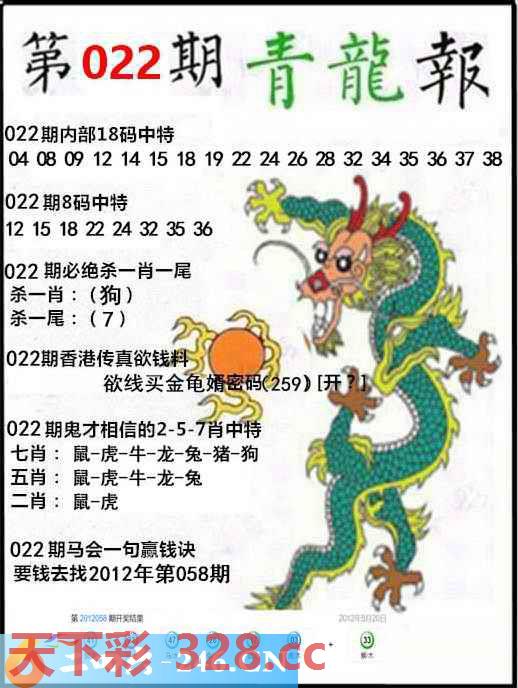 第022期青龍報
022期内部18码中特
04 08 09 12 14 15 18 19 22 24 26 28 32 34 35 36 37 38
022期8码中特
12 15 18 22 24 32 35 36
022期必绝杀一肖一尾
杀一肖：（狗）
杀一尾：（7）
022期香港传真欲钱料
欲线买金龟婿密码(259)[开？]
022期鬼才相信的2-5-7肖中特
七肖：鼠-虎-牛-龙-兔-猪-狗
五肖：鼠-虎-牛-龙-兔
二肖：鼠-虎
022期马会一句赢钱诀
要钱去找2012年第058期
第 2012058 期开奖结果 2012年5月20日
47 03 + 33
天下彩-328.cc